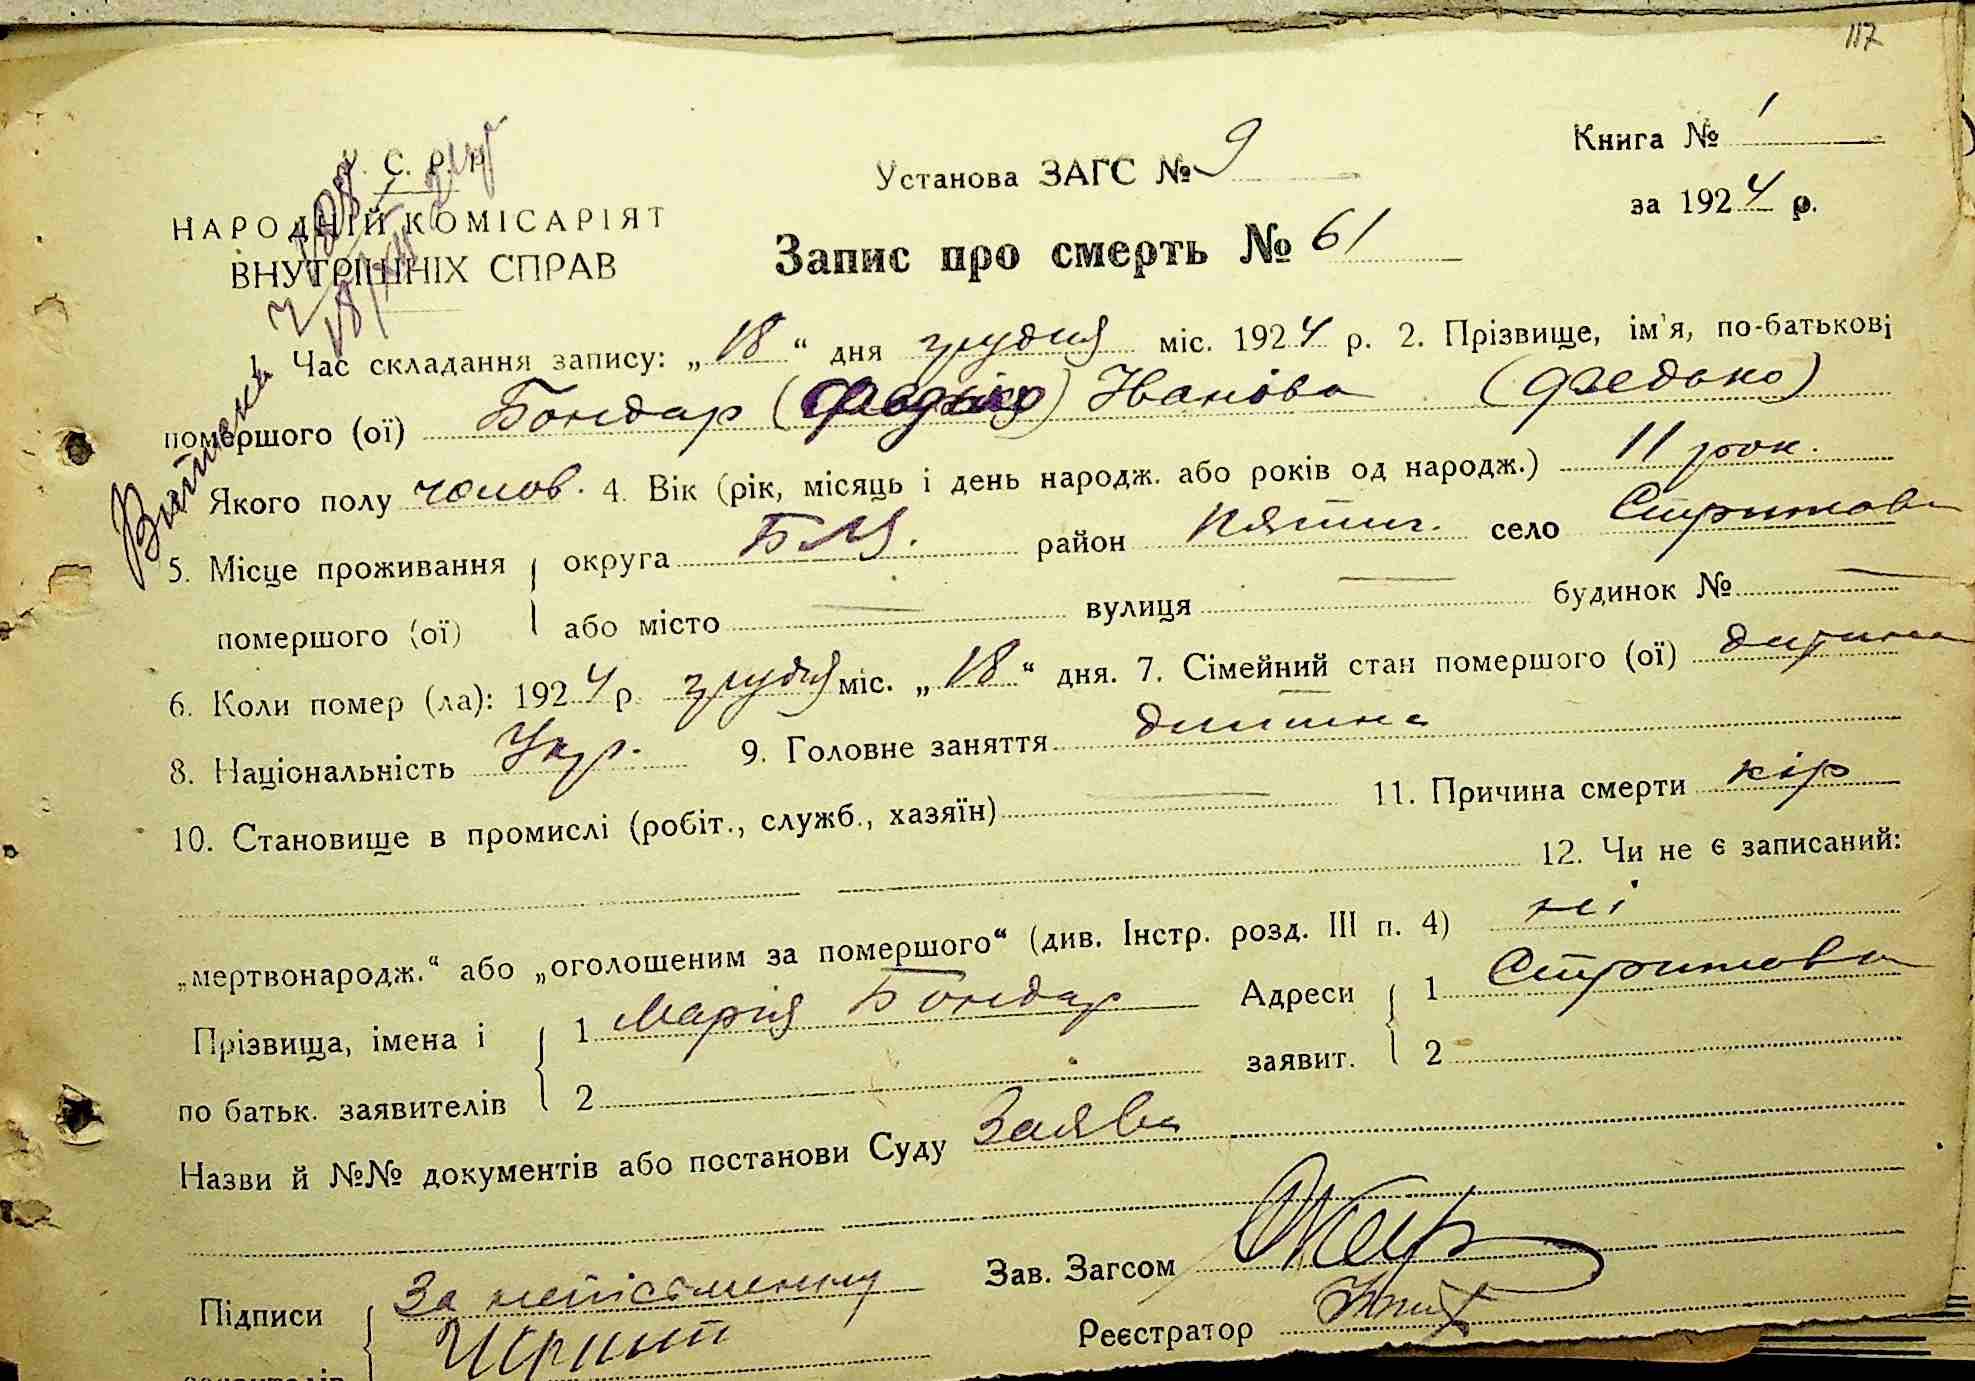 117
У. С. Р. Р.
НАРОДНІЙ КОМІСАРІЯТ
ВНУТРІШНІХ СПРАВ
Установа ЗАГС № 9
Книга № 1
за 1924 р.
Запис про смерть № 61
1. Час складання запису: „18“ дня грудня міс. 1924 р. 2. Прізвище, ім'я, по-батькові
помершого (ої) Бондар (Федько) Іванова (Федько)
Якого полу чолов. 4. Вік (рік, місяць і день народж. або років од народж.) 11 рок.
5. Місце проживання округа БЦ. район Пятиг. село Стрижавка
помершого (ої) або місто — вулиця — будинок № —
6. Коли помер (ла): 1924 р. грудня міс. „18“ дня. 7. Сімейний стан помершого (ої) дитина
8. Національність Укр. 9. Головне заняття дитина
10. Становище в промислі (робіт., служб., хазяїн) — 11. Причина смерти кір
12. Чи не є записаний:
„мертвонародж.“ або „оголошеним за помершого“ (див. Інстр. розд. III п. 4) ні
Прізвища, імена і 1 Марія Бондар Адреси 1 Стрижавка
по батьк. заявителів 2 заявит. 2
Назви й №№ документів або постанови Суду Заява
Зав. Загсом
Підписи За неписьменну
Реєстратор
заявителів